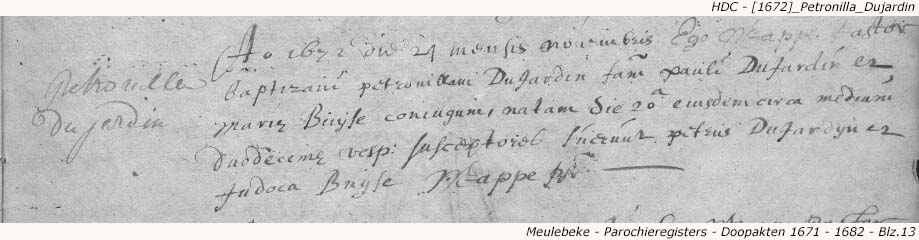 HDC - [1672]_Petronilla_Dujardin
Petronilla
Dujardin
Ao 1672 die 21 mensis novembris Ego Nappe Pastor
baptizavi petronillam DuJardin fam pauli DuJardin et
mariæ Buyse coniugum, natam die 20a eiusdem circa mediam
duodecimæ vesp: susceptores fuerunt petrus DuJardyn et
Judoca Buyse Nappe
Meulebeke - Parochieregisters - Doopakten 1671 - 1682 - Blz.13